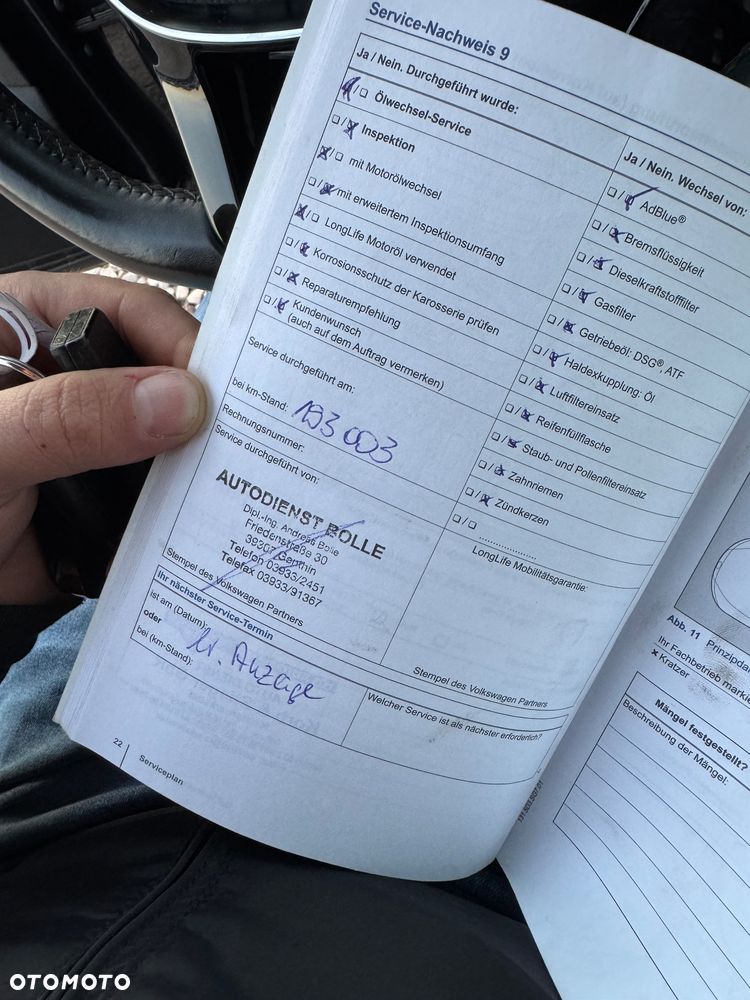 Service-Nachweis 9
Ja / Nein. Durchgeführt wurde:
Ölwechsel-Service
Inspektion
mit Motorölwechsel
mit erweitertem Inspektionsumfang
LongLife Motoröl verwendet
Korrosionsschutz der Karosserie prüfen
Reparaturempfehlung
Kundenwunsch
(auch auf dem Auftrag vermerken)
Service durchgeführt am:
bei km-Stand: 193 003
Rechnungsnummer:
Service durchgeführt von:
AUTODIENST BOLLE
Dipl.-Ing. Andreas Bolle
Friedenstraße 30
39307 Genthin
Telefon 03933/2451
Telefax 03933/91367
Stempel des Volkswagen Partners
Ja / Nein. Wechsel von:
AdBlue®
Bremsflüssigkeit
Dieselkraftstofffilter
Gasfilter
Getriebeöl: DSG®, ATF
Haldexkupplung: Öl
Luftfiltereinsatz
Reifenfüllflasche
Staub- und Pollenfiltereinsatz
Zahnriemen
Zündkerzen
....................
LongLife Mobilitätsgarantie:
Stempel des Volkswagen Partners
Ihr nächster Service-Termin
ist am (Datum):
oder
bei (km-Stand):
lt. Anzeige
Welcher Service ist als nächster erforderlich?
22
Serviceplan
Abb. 11 Prinzipda
Ihr Fachbetrieb markie
× Kratzer
Mängel festgestellt?
Beschreibung der Mängel:
OTOMOTO